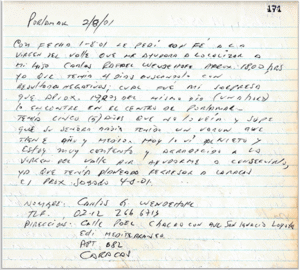 171
Porlamar 2/8/01
Con fecha 1-8-01 le pedí con fé a la
Virgen del Valle que me ayudara a localizar a
mi hijo Carlos Rafael Wendehake
ya que tenía 4 días buscandolo con
resultado negativos, cual fue mi sorpresa
que del mismo día
lo encontré en el centro de Porlamar
tenía cinco (5) años que no lo veía y supe
que su señora había tenido un varon que
tiene año y medio. Hoy lo ví
estoy muy contento y agradecido a la
Virgen del Valle por ayudarme a conseguirlo,
ya que tenía planeado regresar a Caracas
el prox. sabado 4-8-01.
Nombre: Carlos G Wendehake
TLF. 0212 266 6713
Direccion: Calle Poel Chacao con Ave San Ignacio Loyola
Edi. Mediterranea
APT 082
Caracas